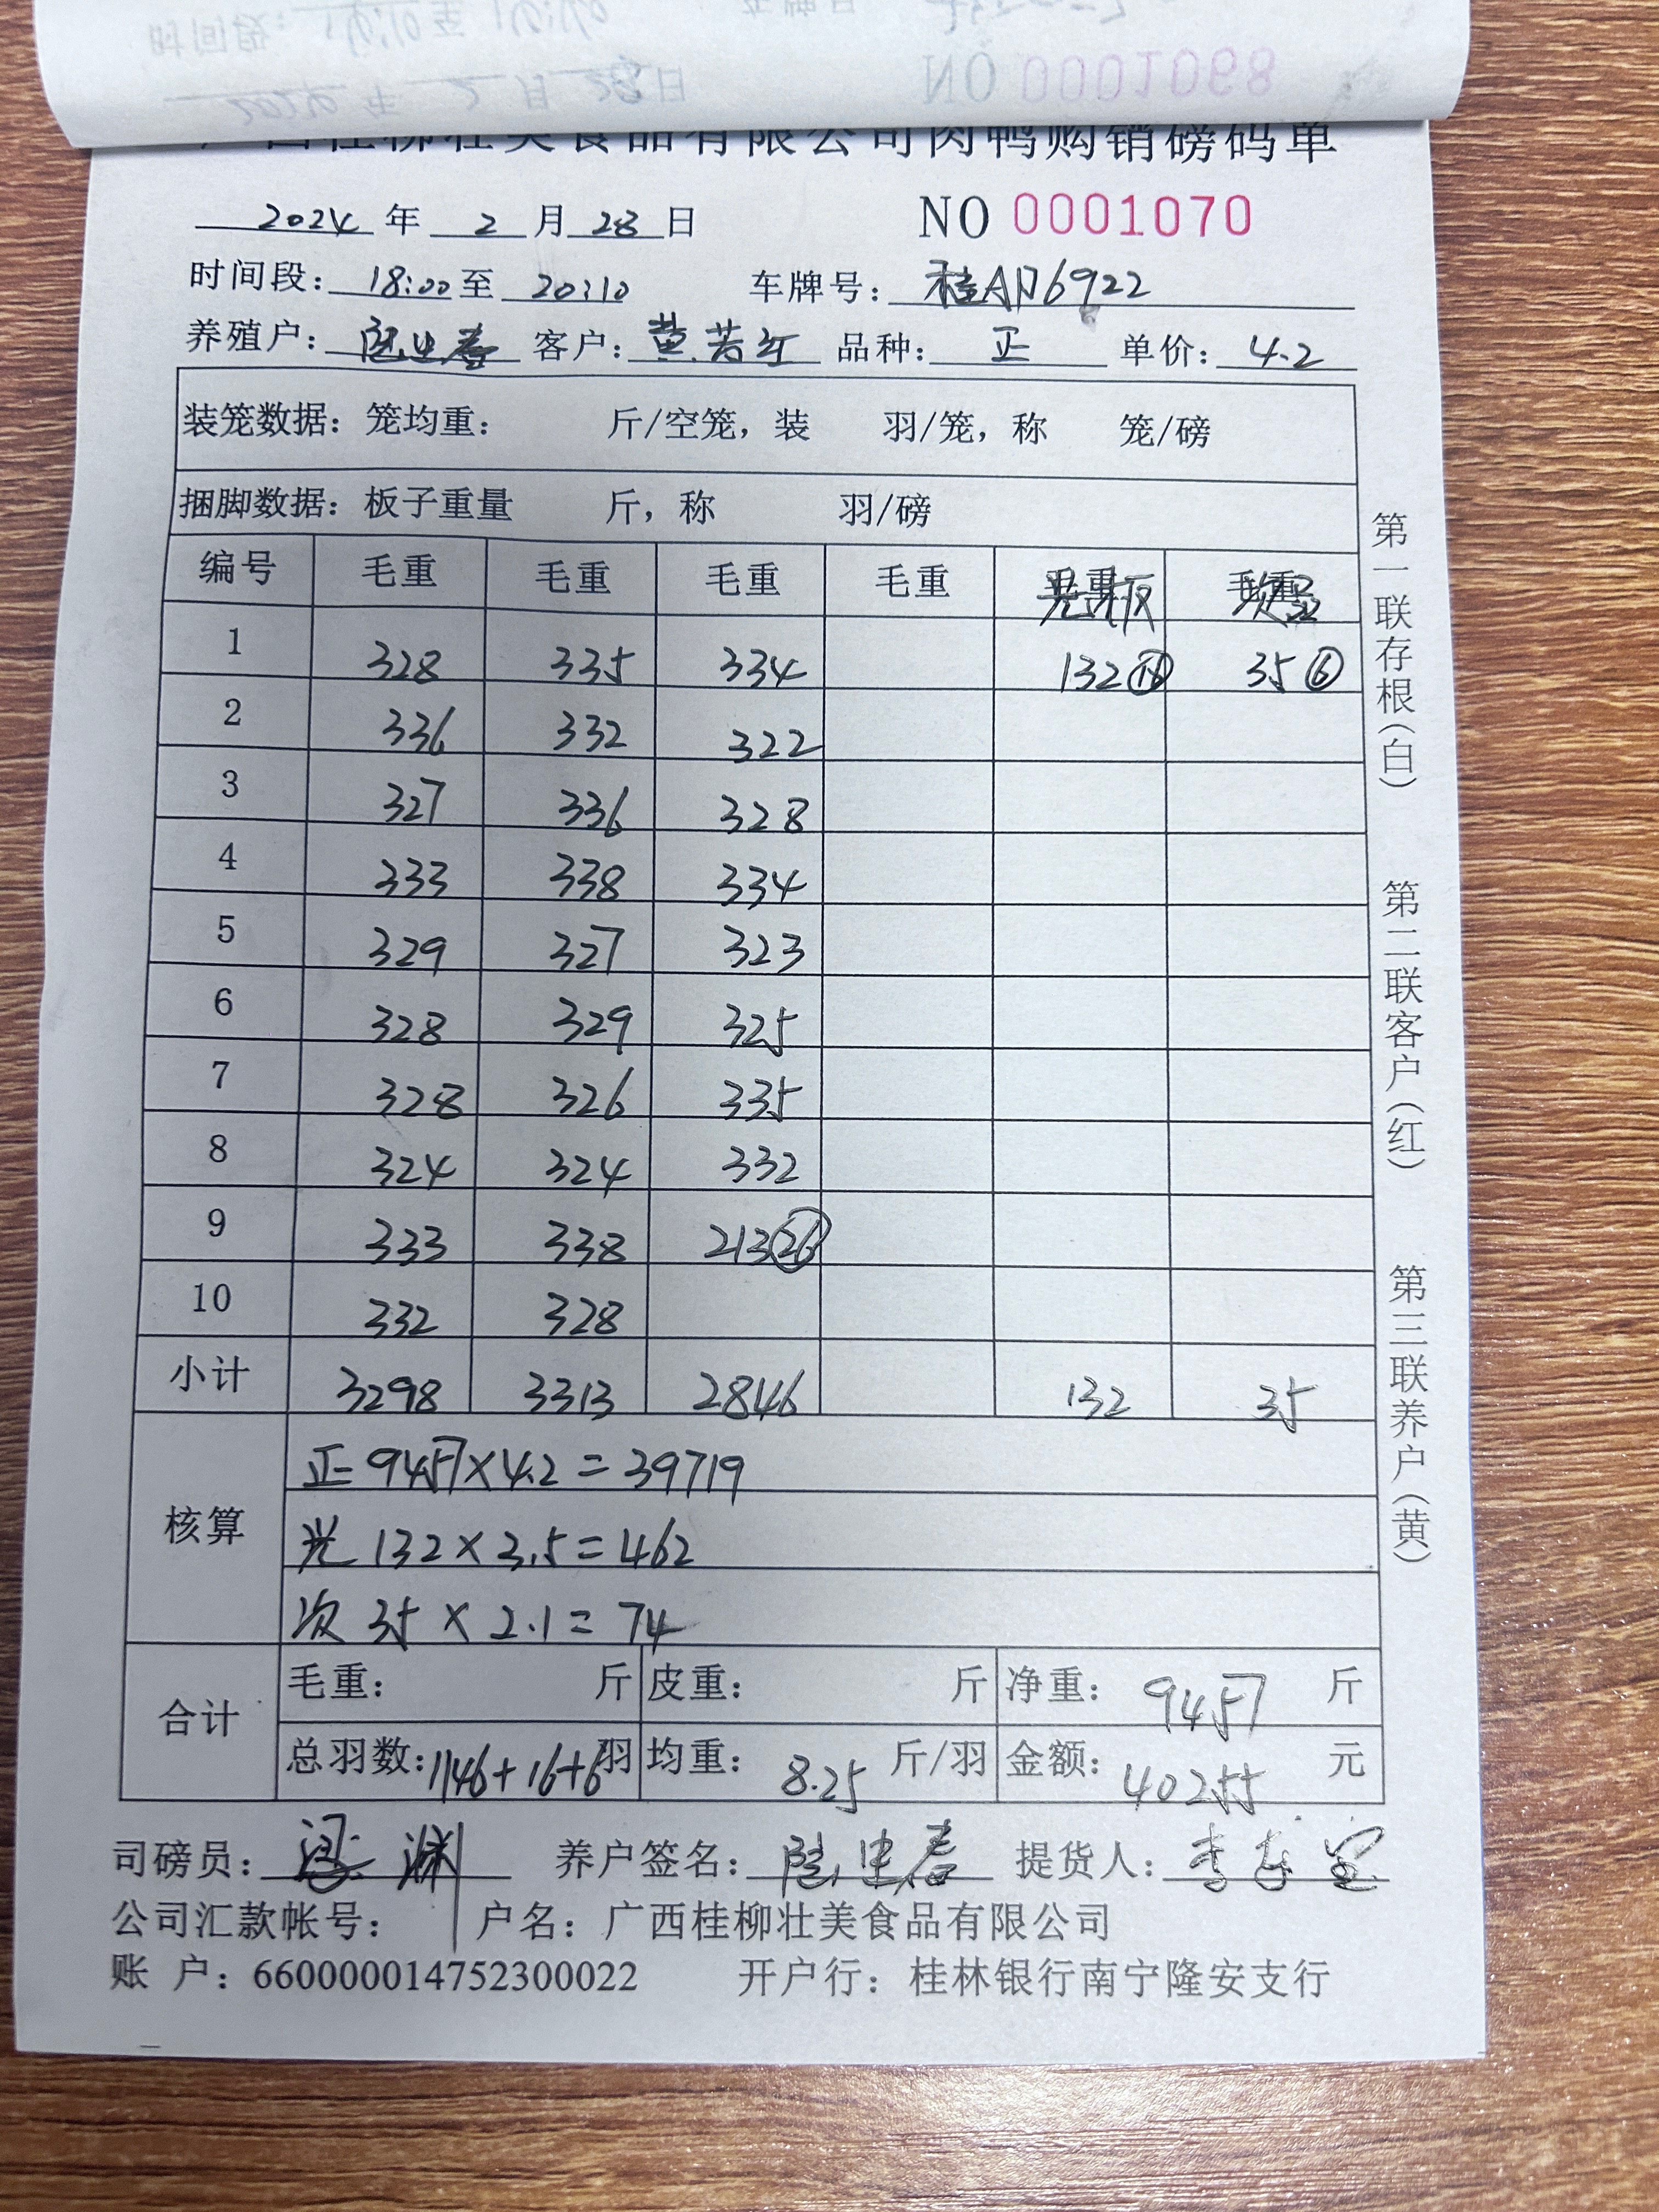 广西桂柳壮美食品有限公司肉鸭购销磅码单
2024 年 2 月 28 日 NO 0001070
时间段: 18:00 至 20:10 车牌号: 桂AD6922
养殖户: 客户: 黄若红 品种: 正 单价: 4.2
装笼数据: 笼均重: 斤/空笼, 装 羽/笼, 称 笼/磅
捆脚数据: 板子重量 斤, 称 羽/磅
编号 毛重 毛重 毛重 毛重 光板 次品
1 328 335 334 132⑯ 35⑥
2 336 332 322
3 327 336 328
4 333 338 334
5 329 327 323
6 328 329 325
7 328 326 335
8 324 324 332
9 333 338 213㉖
10 332 328
小计 3298 3313 2846 132 35
核算
正 9457×4.2=39719
光 132×3.5=462
次 35×2.1=74
合计
毛重: 斤 皮重: 斤 净重: 9457 斤
总羽数: 1146+16+6 羽 均重: 8.25 斤/羽 金额: 40255 元
司磅员: 养户签名: 提货人:
公司汇款帐号: 户名: 广西桂柳壮美食品有限公司
账 户: 660000014752300022 开户行: 桂林银行南宁隆安支行
第一联存根(白)
第二联客户(红)
第三联养户(黄)